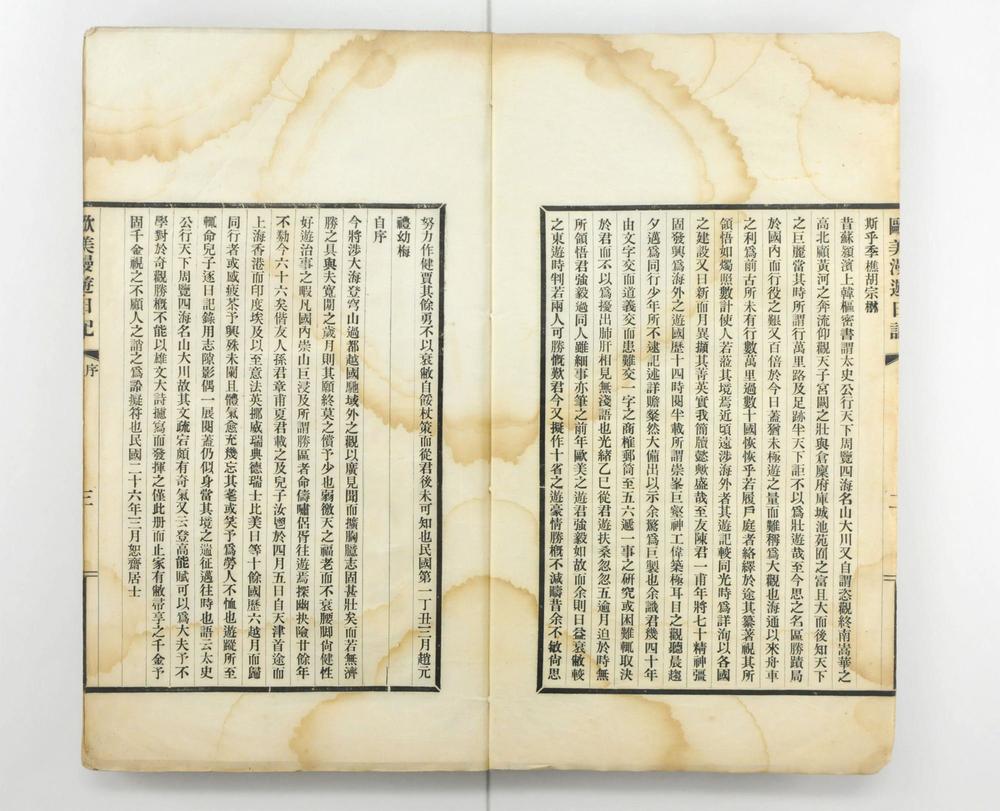 斯乎季樵胡宗楙
昔蘇潁濱上韓樞密書謂太史公行天下周覽四海名山大川又自謂恣觀終南嵩華之
高北顧黃河之奔流仰觀天子宮闕之壯與倉廩府庫城池苑囿之富且大而後知天下
之巨麗當其時所謂行萬里路及足跡半天下詎不以爲壯遊哉至今思之名區勝蹟局
於國內而行役之艱又百倍於今日蓋猶未極遊之量而難稱爲大觀也海通以來舟車
之利爲前古所未有行數萬里過數十國恢恢乎若履戶庭者絡繹於途其纂著視其所
領悟如燭照數計使人若蒞其境焉近頃遠涉海外者其遊記較同光時爲詳洵以各國
之建設又日新而月異擷其菁英實我簡牘懿歟盛哉至友陳君一甫年將七十精神彊
固發興爲海外之遊國歷十四時閱半載所謂崇峯巨壑神工偉築極耳目之觀聽晨趨
夕邁爲同行少年所不逮記述詳贍粲然大備出以示余驚爲巨製也余識君幾四十年
由文字交而道義交而患難交一字之商榷郵筒至五六遞一事之研究或困難輒取決
於君而不以爲擾出肺肝相見無淺語也光緒乙巳從君遊扶桑忽忽五逾月迫於時無
所領悟君強毅過同人雖細事亦筆之前年歐美之遊君強毅如故而余則日益衰敝較
之東遊時判若兩人可勝慨歎君今又擬作十省之遊豪情勝概不減疇昔余不敏尙思
努力作健賈其餘勇不以衰敝自餒杖策而從君後未可知也民國第一丁丑三月趙元
禮幼梅
自序
今將涉大海登穹山過都越國馳域外之觀以廣見聞而擴胸臆志固甚壯矣而若無濟
勝之具與夫寬閒之歲月則其願終莫之償予少也弱徼天之福老而不衰腰脚尙健性
好遊治事之暇凡國內崇山巨浸及所謂勝區者命儔嘯侶胥往遊焉探幽抉險廿餘年
不勌今六十六矣偕友人孫君章甫夏君載之及兒子汝悤於四月五日自天津首途而
上海香港而印度埃及以至意法英挪威瑞典德瑞士比美日等十餘國歷六越月而歸
同行者或感疲苶予興殊未闌且體氣愈充幾忘其耄或笑予爲勞人不恤也遊蹤所至
輒命兒子逐日記錄用志隙影偶一展閱蓋仍似身當其境之遄征邁往時也語云太史
公行天下周覽四海名山大川故其文疏宕頗有奇氣又云登高能賦可以爲大夫予不
學對於奇觀勝概不能以雄文大詩攄寫而發揮之僅此册而止家有敝帚享之千金予
固千金視之不顧人之誚之爲詅癡符也民國二十六年三月恕齋居士
歐美漫遊日記
序
三